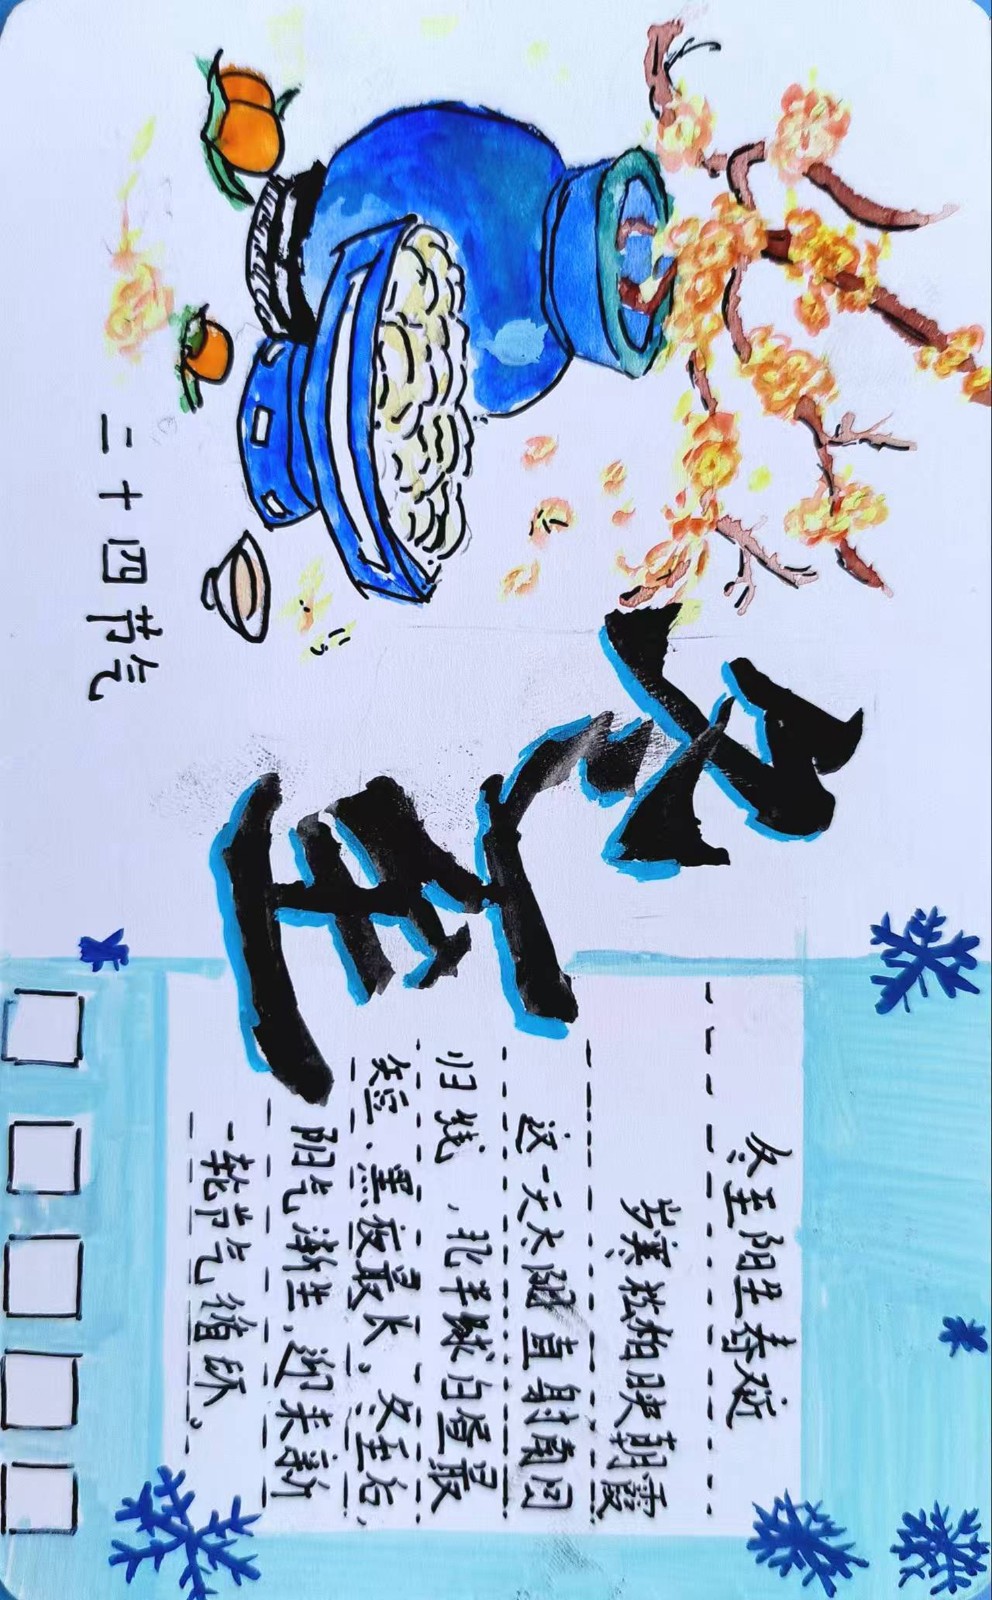 冬至
二十四节气
冬至阳生春又近
岁寒松柏映朝霞
这一天太阳直射南回
归线，北半球白昼最
短、黑夜最长。冬至后，
阳气渐生，迎来新
一轮节气循环。